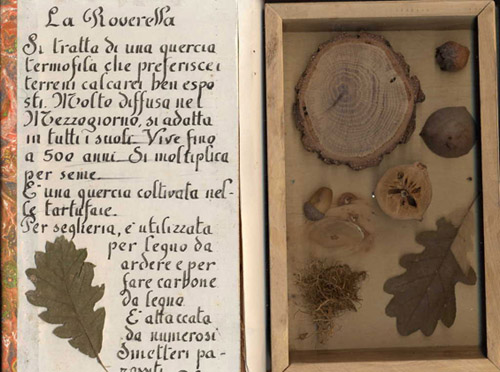 La Roverella
Si tratta di una quercia
termofila che preferisce i
terreni calcarei ben espo
sti. Molto diffusa nel
Mezzogiorno, si adatta
in tutti i suoli. Vive fino
a 500 anni. Si moltiplica
per seme.
È una quercia coltivata nel-
le tartufaie.
Per segheria, e' utilizzata
per legno da
ardere e per
fare carbone
da legna.
È attaccata
da numerosi
Smetteri pa-